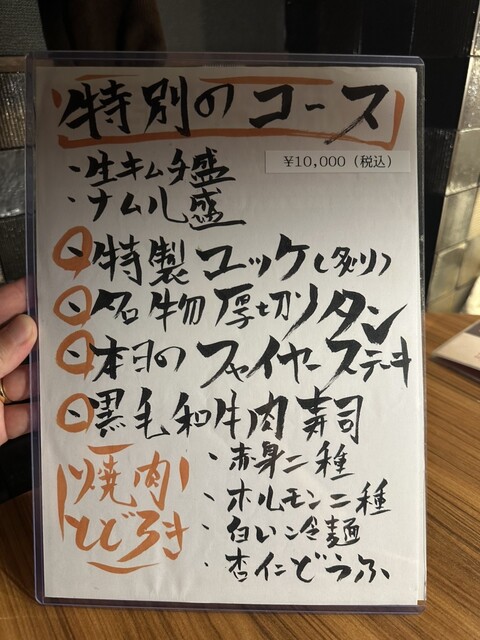 特別のコース
¥10,000（税込）
・生キムチ盛
・ナムル盛
・特製ユッケ（炙り）
・名物厚切りタン
・本日のシャイヤーステーキ
・黒毛和牛肉寿司
・赤身二種
・ホルモン二種
・白い冷麺
・杏仁どうふ
焼肉
とどろき